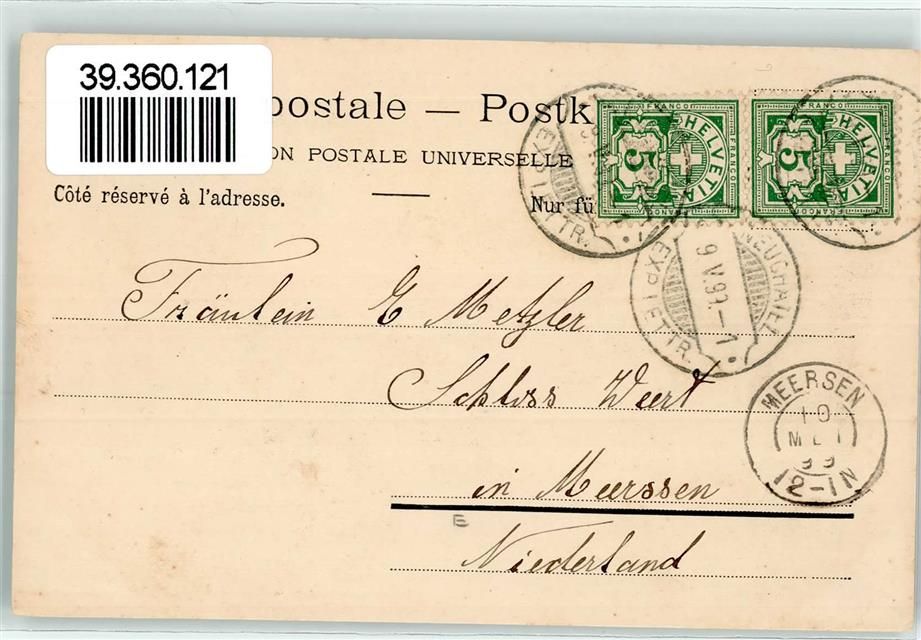 39.360.121
postale — Postk
ON POSTALE UNIVERSELLE
Côté réservé à l'adresse.
Nur fü
FRANCO HELVETIA 5 FRANCO
FRANCO HELVETIA 5 FRANCO
EXP. LETTR.
EXP. LETTR.
9 V. 99.-1
Fräulein E Metzler
Schloss Weert
MEERSEN
10
MEI
99
12-1N
in Meerssen
E
Niederland